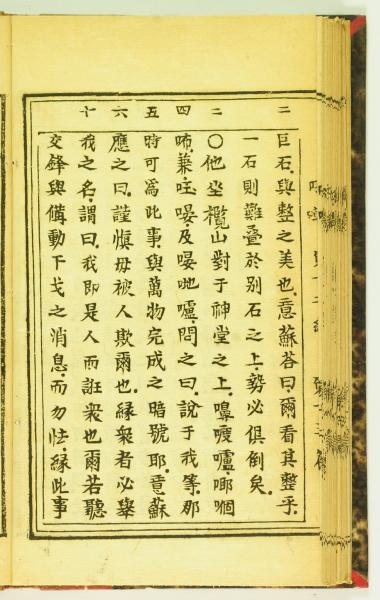 二 巨石與整之美也意蘇答曰爾看其整乎
一石則難疊於別石之上勢必俱倒矣
二 ○他坐欖山對于神堂之上嚧唧嗰
四 及嚧問之曰說于我等那
五 時可為此事與萬物完成之暗號耶意蘇
六 應之曰謹慎毋被人欺爾也緣衆者必舉
十 我之名謂曰我即是人而誑衆也爾若聽
交鋒與備動干戈之消息而勿怯緣此事